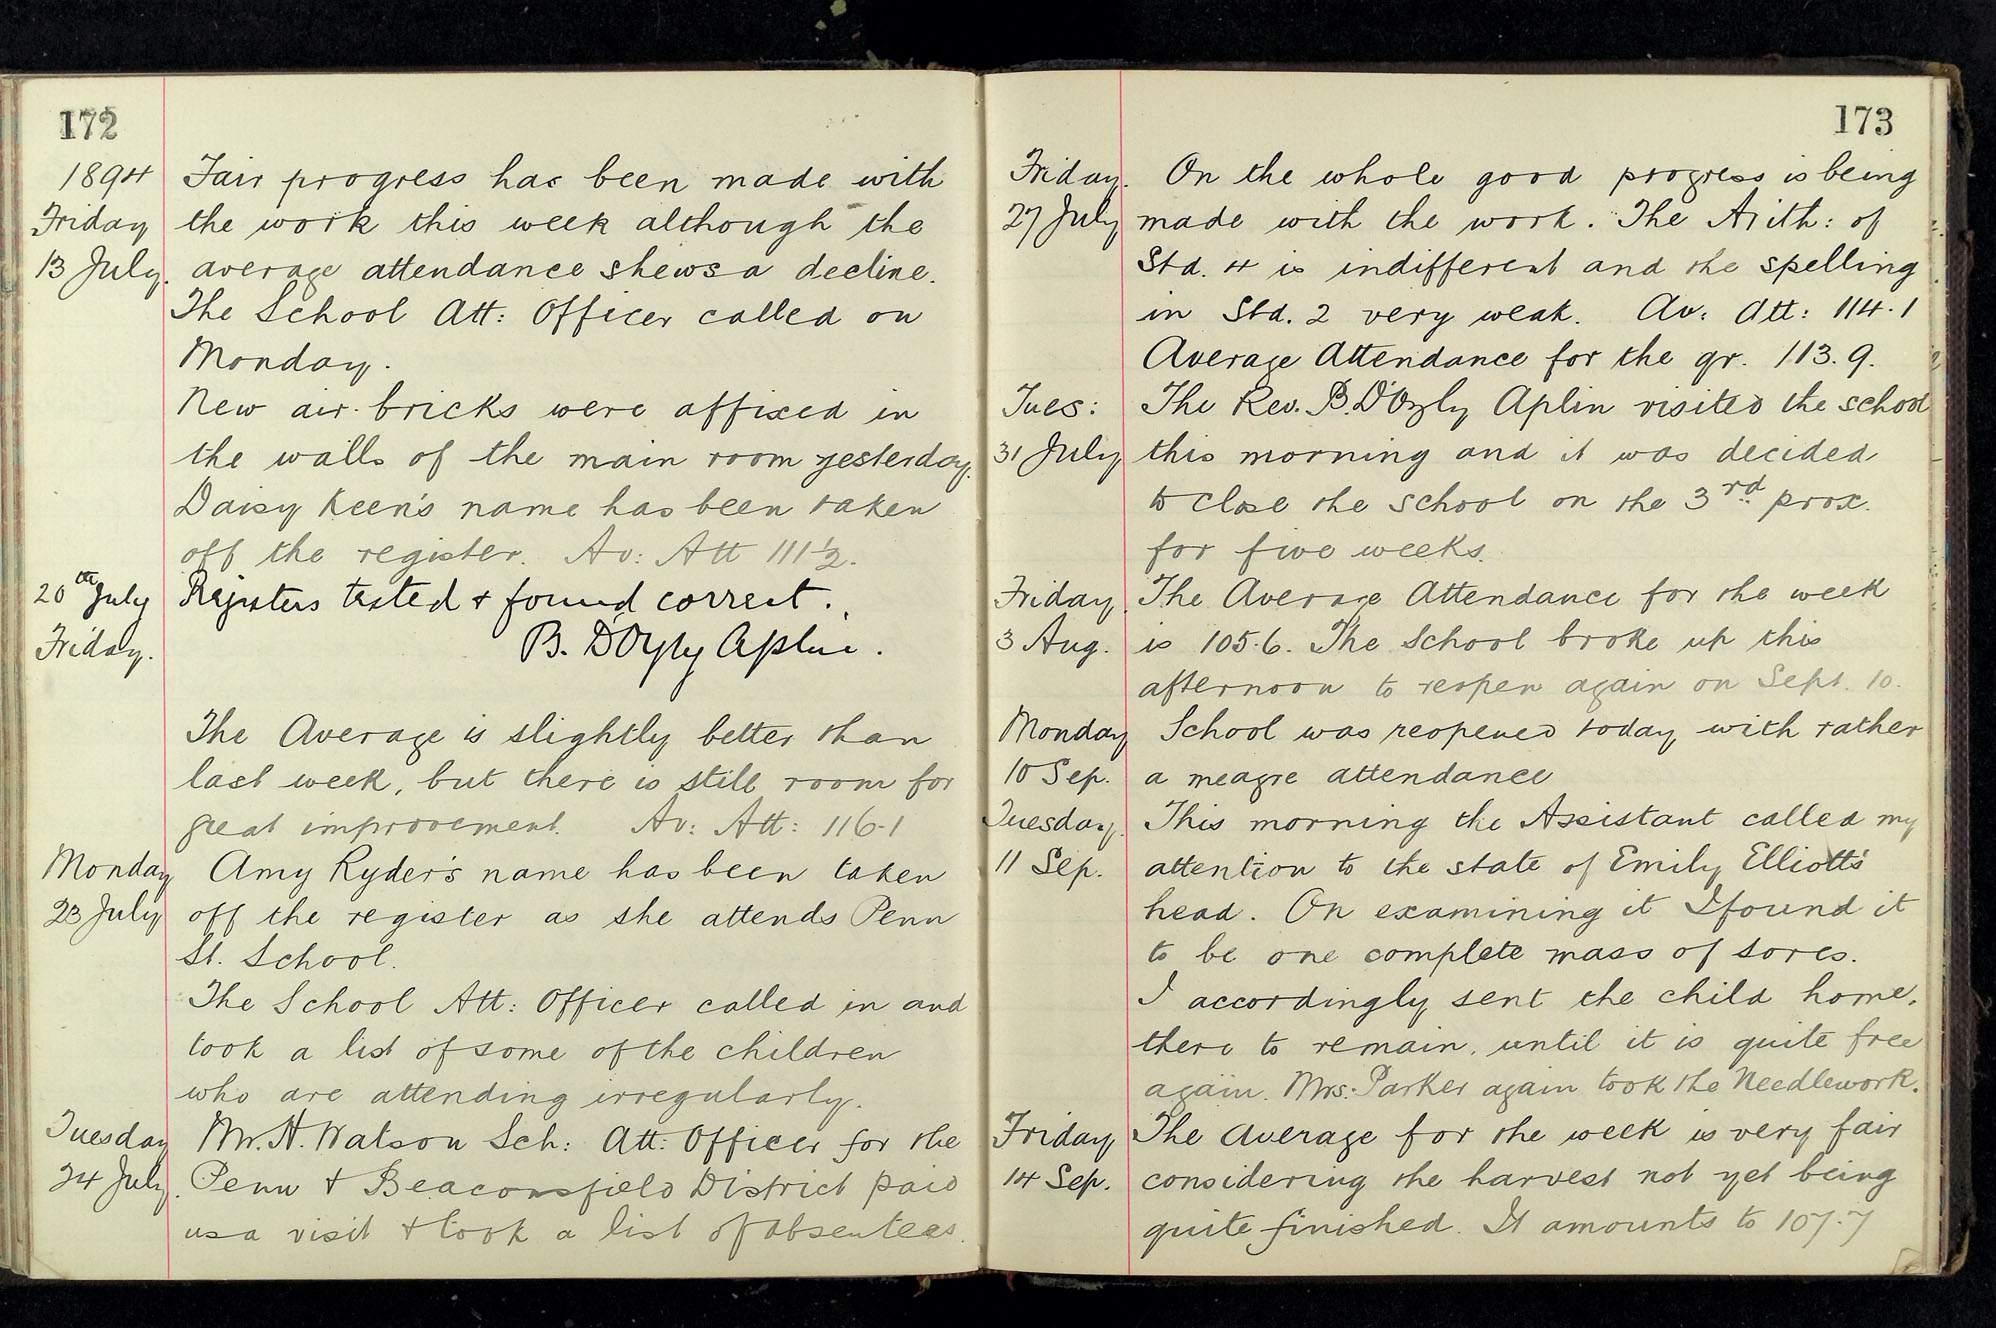 172
1894 Fair progress has been made with
Friday the work this week although the
13 July. average attendance shews a decline.
The School Att: Officer called on
Monday.
New air-bricks were affixed in
the walls of the main room yesterday.
Daisy Keen's name has been taken
off the register. Av: Att 111½.
20th July Registers tested & found correct.
Friday. B. D'Oyly Aplin.
The Average is slightly better than
last week, but there is still room for
great improvement. Av: Att: 116.1
Monday Amy Ryder's name has been taken
23 July off the register as she attends Penn
St. School.
The School Att: Officer called in and
took a list of some of the children
who are attending irregularly.
Tuesday Mr. H. Watson Sch: Att: Officer for the
24 July. Penn & Beaconsfield District paid
us a visit & took a list of absentees.
173
Friday. On the whole good progress is being
27 July made with the work. The Arith: of
Std. 4 is indifferent and the spelling
in Std. 2 very weak. Av: Att: 114.1
Average Attendance for the qr. 113.9.
Tues: The Rev. B. D'Oyly Aplin visited the school
31 July this morning and it was decided
to close the school on the 3rd prox.
for five weeks.
Friday. The Average Attendance for the week
3 Aug. is 105.6. The School broke up this
afternoon to reopen again on Sept. 10.
Monday School was reopened today with rather
10 Sep. a meagre attendance
Tuesday. This morning the Assistant called my
11 Sep. attention to the state of Emily Elliott's
head. On examining it I found it
to be one complete mass of sores.
I accordingly sent the child home,
there to remain, until it is quite free
again. Mrs: Parker again took the Needlework.
Friday The Average for the week is very fair
14 Sep. considering the harvest not yet being
quite finished. It amounts to 107.7